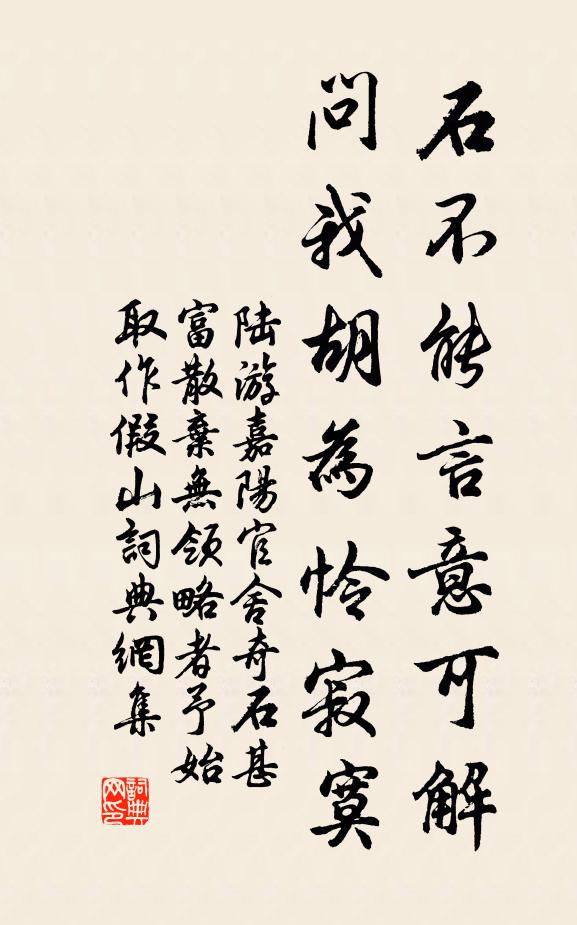 石不能言意可解
問我胡為怜寂寞
陆游嘉陽官舍奇石甚
富散棄無領略者予始
取作假山詞典網集
詞典
网印